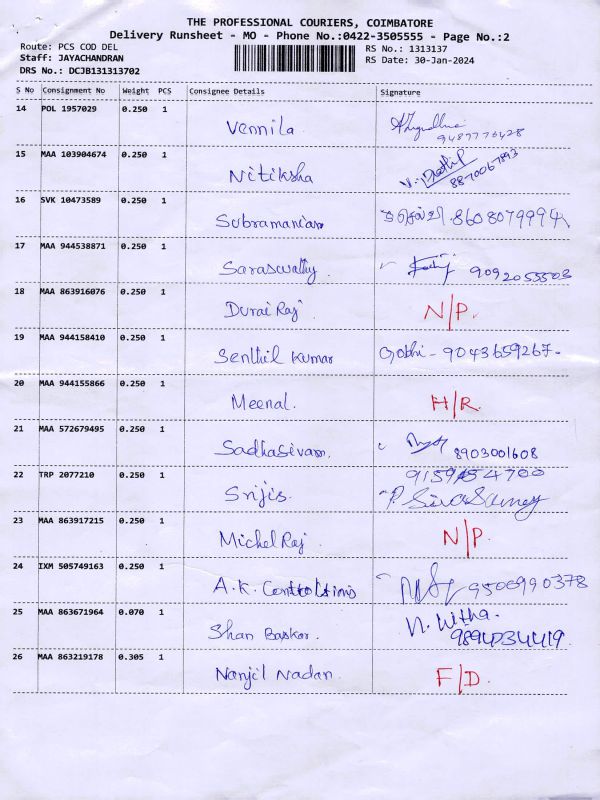 THE PROFESSIONAL COURIERS, COIMBATORE
Delivery Runsheet - MO - Phone No.:0422-3505555 - Page No.:2
Route: PCS COD DEL
RS No.: 1313137
Staff: JAYACHANDRAN
RS Date: 30-Jan-2024
DRS No.: DCJB131313702
S No Consignment No Weight PCS Consignee Details Signature
14 POL 1957029 0.250 1 Vennila
9487776428
15 MAA 103904674 0.250 1 Nitiksha
8870067893
16 SVK 10473589 0.250 1 Subramaniam 8608079994
17 MAA 944538871 0.250 1 Saraswathy 9092055503
18 MAA 863916076 0.250 1 Durai Raj N/P.
19 MAA 944158410 0.250 1 Senthil Kumar Gobhi - 9043659267-
20 MAA 944155866 0.250 1 Meenal. H/R.
21 MAA 572679495 0.250 1 Sadhasivam. 8903001608
22 TRP 2077210 0.250 1 Srijis. 9159454700
P. SivaSamey
23 MAA 863917215 0.250 1 Michel Raj N/P.
24 IXM 505749163 0.250 1 A.K. 9500990378
25 MAA 863671964 0.070 1 Shan Baskar. N. Nitha.
9894034419
26 MAA 863219178 0.305 1 Nanjil Nadan. F/D.